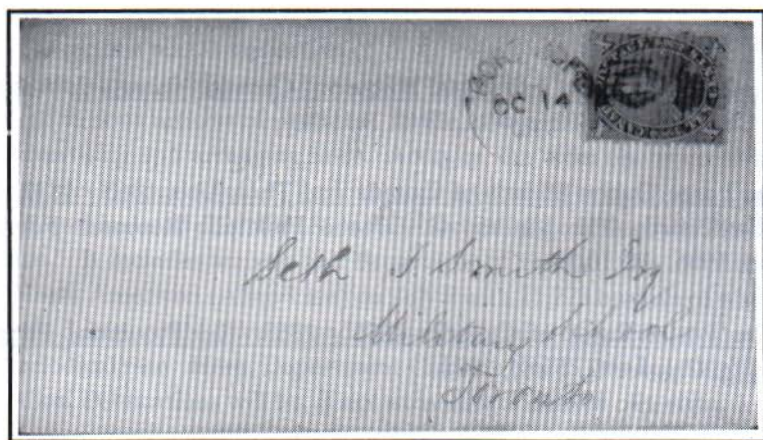 OC 14
Seth S Smith Esq
Military School
Toronto